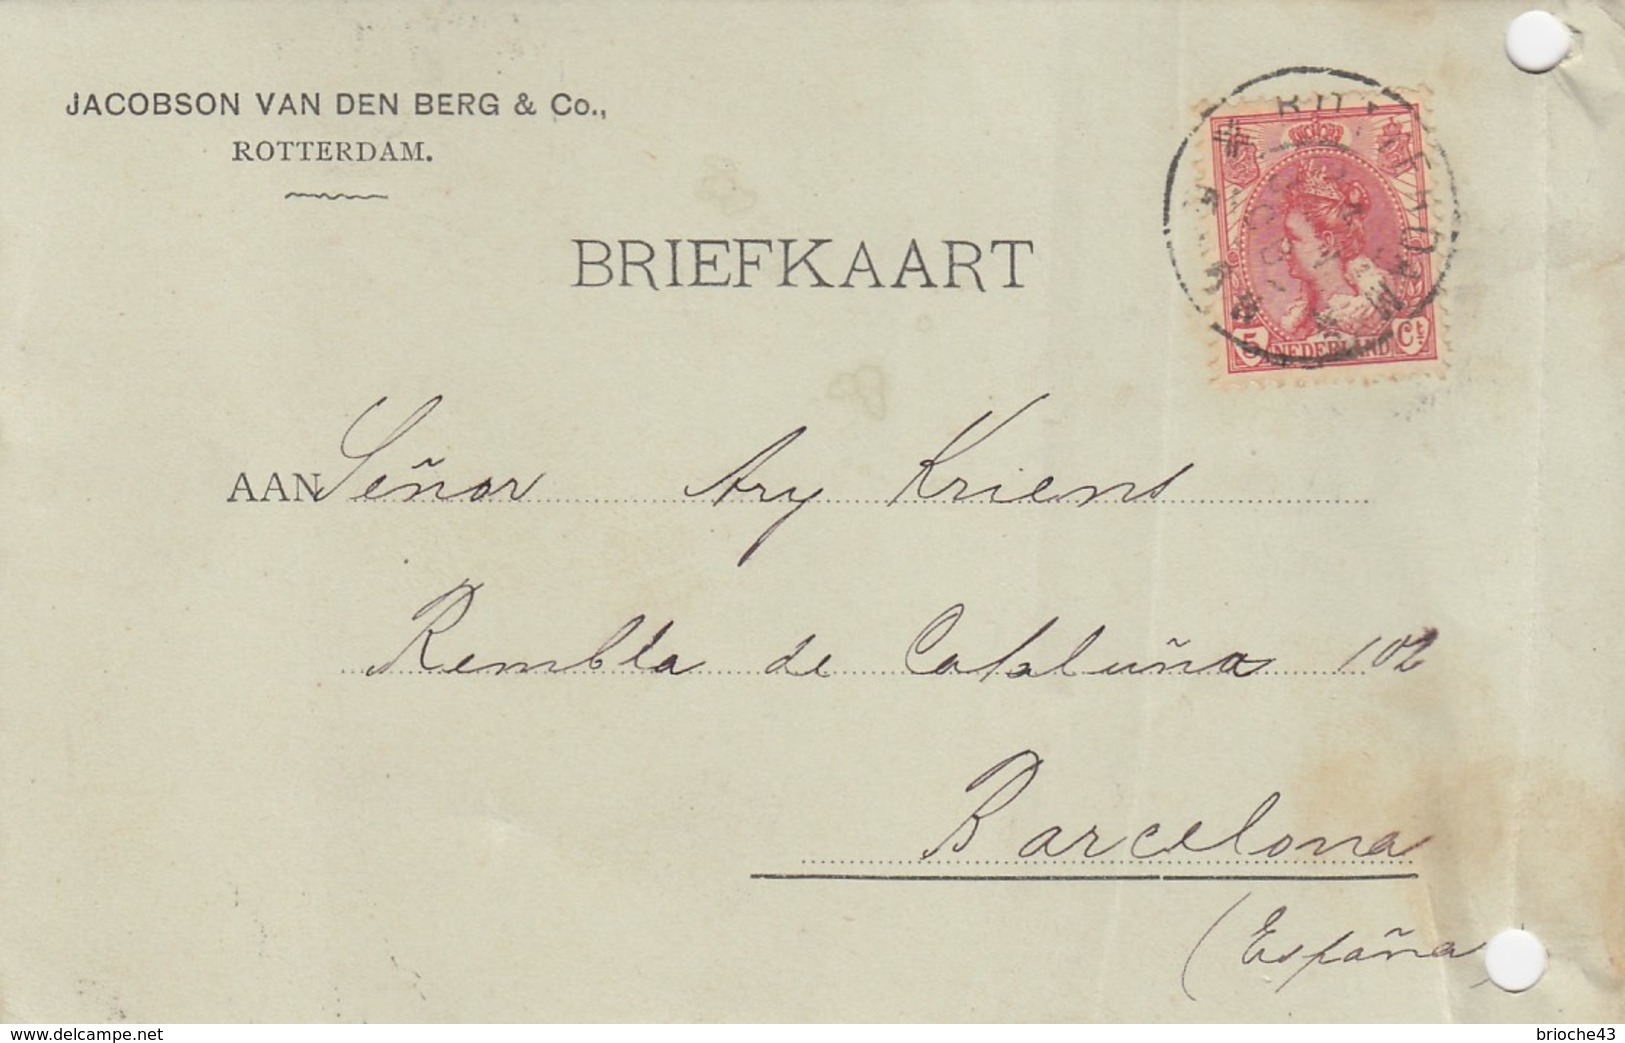 JACOBSON VAN DEN BERG & Co.,
ROTTERDAM.
BRIEFKAART
ROTTERDAM
5 NEDERLAND Ct
AAN Señor Ary Kriens
Rembla de Cataluña 102
Barcelona
(España)
www.delcampe.net
brioche43